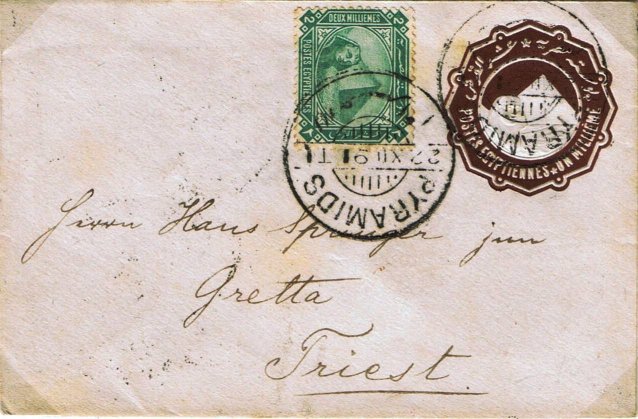 DEUX MILLIEMES
POSTES EGYPTIENNES
2
PYRAMIDS
22 XII 91 T1
PYRAMIDS
POSTES EGYPTIENNES ★ UN MILLIEME
Herrn Hans Springer jun
Gretta
Triest.